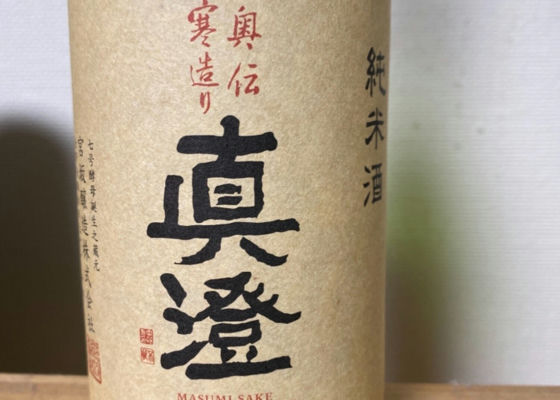 純米酒
奥伝
寒造り
真澄
七号酵母誕生之蔵元
宮坂醸造株式会社
MASUMI SAKE